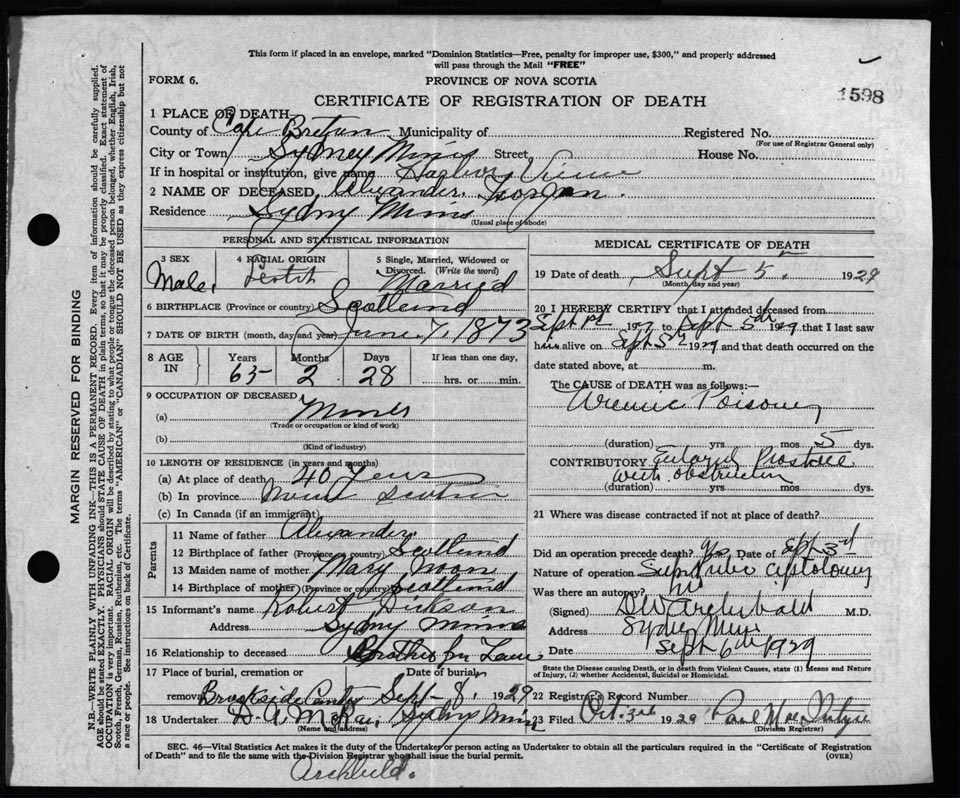 This form if placed in an envelope, marked "Dominion Statistics—Free, penalty for improper use, $300," and properly addressed
will pass through the Mail "FREE"
FORM 6.
PROVINCE OF NOVA SCOTIA
CERTIFICATE OF REGISTRATION OF DEATH
1598
MARGIN RESERVED FOR BINDING
N.B.—WRITE PLAINLY WITH UNFADING INK—THIS IS A PERMANENT RECORD. Every item of information should be carefully supplied.
AGE should be stated EXACTLY. PHYSICIANS should STATE CAUSE OF DEATH in plain terms, so that it may be properly classified. Exact statement of
OCCUPATION is very important. RACIAL ORIGIN will be described by stating to what people or tongue the deceased person belonged, whether English, Irish,
Scotch, French, German, Russian, Ruthenian, etc. The terms "AMERICAN" or "CANADIAN" SHOULD NOT BE USED as they express citizenship but not
a race or people. See instructions on back of Certificate.
1 PLACE OF DEATH
County of Cape Breton Municipality of Registered No.
(For use of Registrar General only)
City or Town Sydney Mines Street House No.
If in hospital or institution, give name Harbor View
2 NAME OF DECEASED Alexander
Residence Sydny Mines
(Usual place of abode)
PERSONAL AND STATISTICAL INFORMATION
3 SEX Male
4 RACIAL ORIGIN Scotch
5 Single, Married, Widowed or
Divorced. (Write the word)
Married
6 BIRTHPLACE (Province or country) Scotland
7 DATE OF BIRTH (month, day and year) June 7, 1873
8 AGE IN Years Months Days If less than one day,
65 2 28 hrs. or min.
9 OCCUPATION OF DECEASED
(a) Miner
(Trade or occupation or kind of work)
(b)
(Kind of industry)
10 LENGTH OF RESIDENCE (in years and months)
(a) At place of death 40 Years
(b) In province Nova Scotia
(c) In Canada (if an immigrant)
Parents
11 Name of father Alexander
12 Birthplace of father (Province or country) Scotland
13 Maiden name of mother Mary Noon
14 Birthplace of mother (Province or country) Scotland
15 Informant's name Robert Dickson
Address Sydny Mines
16 Relationship to deceased Brother in Law
17 Place of burial, cremation or Date of burial
removal Brookside Sept 8, 1929
18 Undertaker D. A. McKay Sydny Mines
(Name and address)
MEDICAL CERTIFICATE OF DEATH
19 Date of death Sept 5th 1929
(Month, day and year)
20 I HEREBY CERTIFY that I attended deceased from
Sept 1st 1929 to Sept 5th 1929 that I last saw
him alive on Sept 5th 1929 and that death occurred on the
date stated above, at m.
The CAUSE of DEATH was as follows:—
Uremic Poisoning
(duration) yrs mos 5 dys.
CONTRIBUTORY Enlarged Prostate
with obstruction
(duration) yrs. mos. dys.
21 Where was disease contracted if not at place of death?
Did an operation precede death? Yes Date of Sept 3rd
Nature of operation Supra pubic cystotomy
Was there an autopsy? no
(Signed) D W Archibald M.D.
Address Sydney Mines
Date Sept 6th 1929
State the Disease causing Death, or in death from Violent Causes, state (1) Means and Nature
of Injury, (2) whether Accidental, Suicidal or Homicidal.
22 Registrar's Record Number
23 Filed Oct. 3rd 1929 Paul MacIntyre
(Division Registrar)
SEC. 46—Vital Statistics Act makes it the duty of the Undertaker or person acting as Undertaker to obtain all the particulars required in the "Certificate of Registration
of Death" and to file the same with the Division Registrar who shall issue the burial permit.
(OVER)
Archibald.